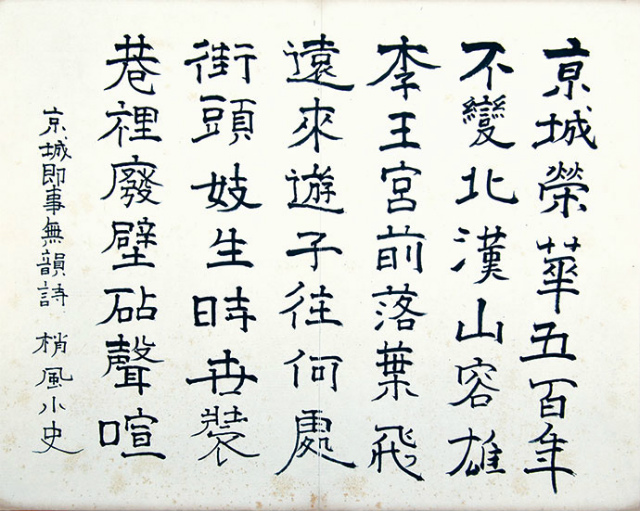 京城榮華五百年
不變北漢山容雄
李王宮前落葉飛
遠來遊子往何處
街頭妓生時世裝
巷裡廢壁砧聲喧
京城即事無韻詩 梢風小史